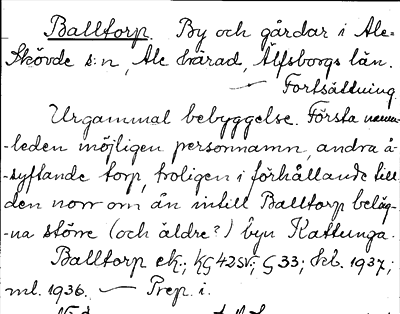 Balltorp. By och gårdar i Ale-
Skövde s:n, Ale härad, Älfsborgs län.
— Fortsättning.
Urgammal bebyggelse. Första namn-
-leden möjligen personnamn, andra å-
-syftande torp, troligen i förhållande till
den norr om ån intill Balltorp beläg-
-na större (och äldre?) byn Kattunga.
Balltorp ek.; kG 42SV; G 33; skl. 1937;
ml. 1936. — Prep. i.